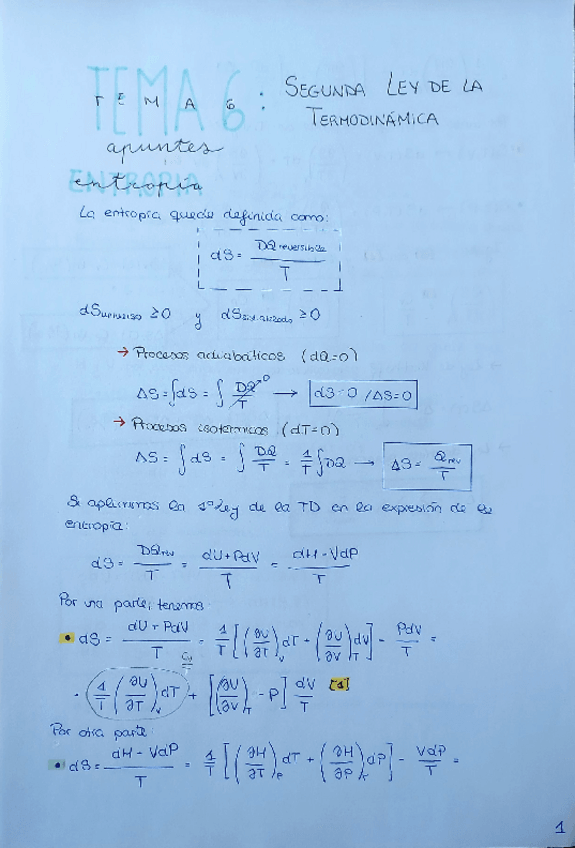 TEMA 6: SEGUNDA LEY DE LA
TERMODINÁMICA
TEMA 6
apuntes
ENTROPIA
entropía
La entropía queda definida como:
dS = DQreversible / T
dSuniverso ≥ 0 y dSsist. aislado ≥ 0
→ Procesos adiabáticos (dQ=0)
ΔS = ∫dS = ∫ DQ↗0 / T → dS=0 / ΔS=0
→ Procesos isotérmicos (dT=0)
ΔS = ∫dS = ∫ DQ/T = 1/T ∫DQ → ΔS = Qrev / T
Si aplicamos la 1ª Ley de la TD en la expresión de la
entropía:
dS = DQrev / T = dU + PdV / T = dH - VdP / T
Por una parte, tenemos:
• dS = dU + PdV / T = 1/T [(∂U/∂T)v dT + (∂U/∂V)T dV] - PdV/T =
Cv
= 1/T (∂U/∂T)v dT + [(∂U/∂V)T - P] dV/T [1]
Por otra parte:
• dS = dH - VdP / T = 1/T [(∂H/∂T)P dT + (∂H/∂P)T dP] - VdP/T =
1